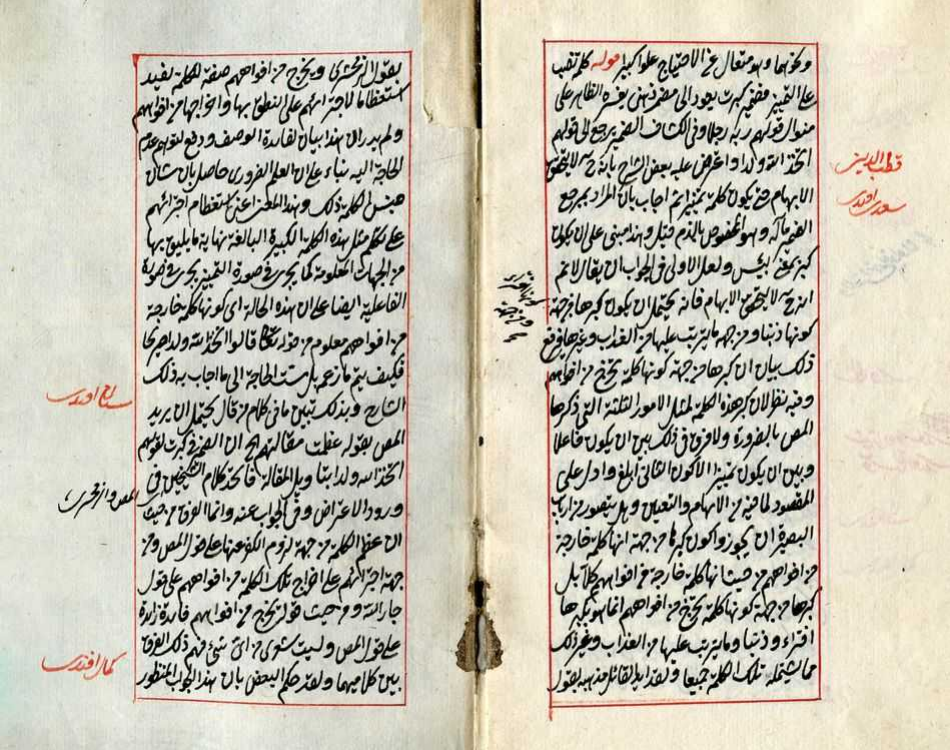 ونحوهما وهو متعال عن الاحتياج علوا كبيرا قوله كلمة نصب
على التمييز فضمير كبرت يعود الى مضمر ذهني يفسره الظاهر على
منوال قولهم ربه رجلا وفي الكشاف الضمير يرجع الى قولهم
اتخذ الله ولدا واعترض عليه بعض الشراح بانه ح لا يتحقق
الابهام حتى يكون كلمة تمييزا ثم اجاب بان المراد بمرجع
الضمير مآله وهو المخصوص بالذم قيل وهذا مبني على ان يكون
كبر بمعنى بئس ولعل الاولى في الجواب ان يقال لا نم
انه ح لا يتحقق الابهام فانه يحتمل ان يكون كبرها من جهة
كونها ذنبا ومن جهة ما يترتب عليها من العذاب وغيرها فوقع
ذلك بيان ان كبرها من جهة كونها كلمة تخرج من افواههم
وفيه نظر لان كبر هذه الكلمة لمثل الامور الثلثة التي ذكرها
المص بالضرورة ولا فرق في ذلك بين ان يكون فاعلا
وبين ان يكون تمييزا الا كون الثاني ابلغ وادل على
المقصود لما فيه من الابهام والتعيين وهل يتصور من ارباب
البصيرة ان يجوزوا كون كبرها من جهة انها كلمة خارجة
من افواههم من حيث انها كلمة خارجة من افواههم كلا بل
كبرها من جهة كونها كلمة تخرج من افواههم انما هو بكبرها
افتراء وذنبا وما يترتب عليها من العذاب وغير ذلك
مما يشتمله تلك الكلمة جميعا ولقد ايد القائل مذهبه بقول
قطب الدين
سعدى افندى
بقول الزمخشرى وتخرج من افواههم صفة للكلمة تفيد
استعظاما لاجترائهم على النطق بها واخراجها من افواههم
ولم يدر ان هذا بيان لفائدة الوصف ودفع لتوهم عدم
الحاجة اليه بناء على ان العلم الضرورى حاصل بان شان
جنس الكلمة ذلك وهذا المعنى اعنى استعظام اجترائهم
على تكلم مثل هذه الكلمة الكبيرة البالغة نهاية ما يليق بها
من الجهات المعلومة كما يجرى في صورة التمييز يجرى في صورة
الفاعلية ايضا على ان هذه الحالة اى كونها كلمة خارجة
من افواههم معلوم من قوله تعالى قالوا اتخذ الله ولدا صريحا
فكيف يتم ما زعم بل مست الحاجة الى ما اجاب به ذلك
الشارح وبذلك تبين ما في كلام من قال يحتمل ان يريد
المص بقوله عظمت مقالتهم ان الضمير في كبرت لقولهم
اتخذ الله ولدا بتاويل المقالة فاتحد كلام الشيخين في
ورود الاعتراض وفي الجواب عنه وانما الفرق من حيث
ان عظم الكلمة من جهة لزوم الكفر عنها على قول المص ومن
جهة اجترائهم على اخراج تلك الكلمة من افواههم على قول
جار الله ومن حيث قوله تخرج من افواههم فائدة زائدة
على قول المص وليت شعرى من اى شيء فهم ذلك الفرق
بين كلاميهما ولقد حكم البعض بان هذا الجواب المنظور
سنان افندى
المص والزمخشرى
كمال افندى